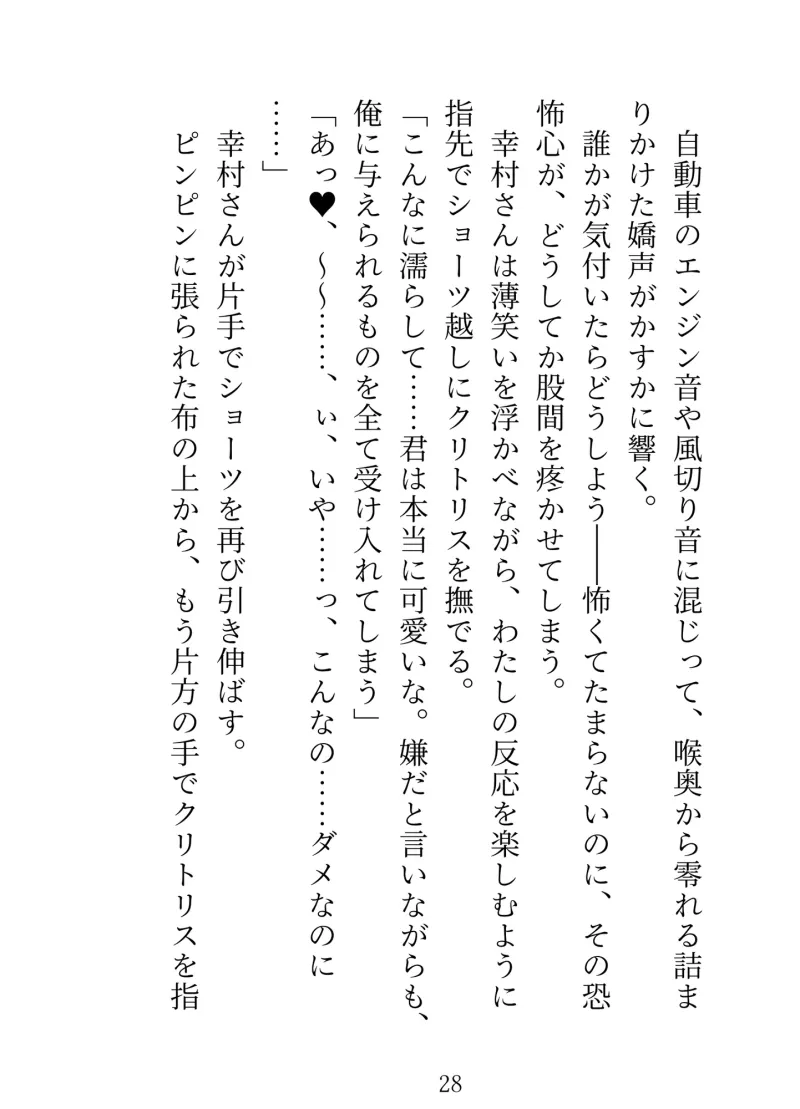 自動車のエンジン音や風切り音に混じって、喉奥から零れる詰ま
りかけた嬌声がかすかに響く。
誰かが気付いたらどうしよう――怖くてたまらないのに、その恐
怖心が、どうしてか股間を疼かせてしまう。
幸村さんは薄笑いを浮かべながら、わたしの反応を楽しむように
指先でショーツ越しにクリトリスを撫でる。
「こんなに濡らして……君は本当に可愛いな。嫌だと言いながらも、
俺に与えられるものを全て受け入れてしまう」
「あっ♥、～～……、ぃ、いや……っ、こんなの……ダメなのに
……」
幸村さんが片手でショーツを再び引き伸ばす。
ピンピンに張られた布の上から、もう片方の手でクリトリスを指
28